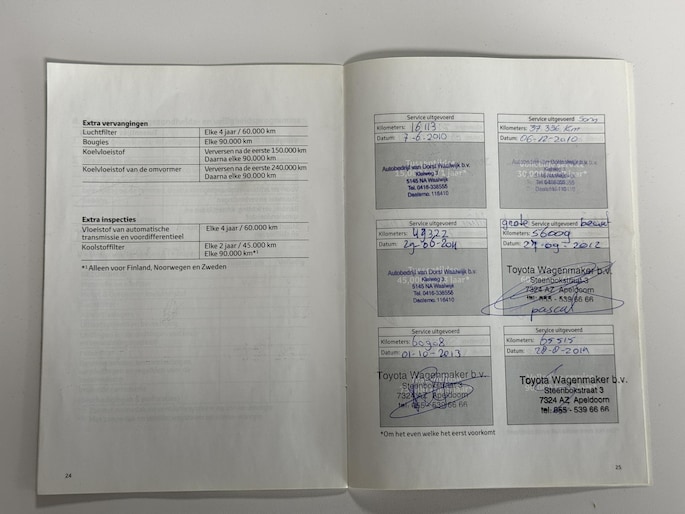 Extra vervangingen
Luchtfilter Elke 4 jaar / 60.000 km
Bougies Elke 90.000 km
Koelvloeistof Verversen na de eerste 150.000 km
Daarna elke 90.000 km
Koelvloeistof van de omvormer Verversen na de eerste 240.000 km
Daarna elke 90.000 km
Extra inspecties
Vloeistof van automatische transmissie en voordifferentieel Elke 4 jaar / 60.000 km
Koolstoffilter Elke 2 jaar / 45.000 km
Elke 90.000 km*¹
*¹ Alleen voor Finland, Noorwegen en Zweden
24
Service uitgevoerd
Kilometers: 16113
Datum: 7-6-2010
Autobedrijf van Dorst Waalwijk b.v.
Kleiweg 7
5145 NA Waalwijk
Tel. 0416-338555
Deelernr. 116410
Service uitgevoerd
Kilometers: 37.336 Km
Datum: 06-12-2010
Autobedrijf van Dorst Waalwijk b.v.
Kleiweg 7
5145 NA Waalwijk
Tel. 0416-338555
Deelernr. 116410
Service uitgevoerd
Kilometers: 49322
Datum:
Autobedrijf van Dorst Waalwijk b.v.
Kleiweg 7
5145 NA Waalwijk
Tel. 0416-338555
Deelernr. 116410
grote Service uitgevoerd beurt
Kilometers: 56009
Datum: 27-09-2012
Toyota Wagenmaker b.v.
Steenbokstraat 3
7324 AZ Apeldoorn
tel. 055 - 539 66 66
pascal
Service uitgevoerd
Kilometers: 60908
Datum: 01-10-2013
Toyota Wagenmaker b.v.
Steenbokstraat 3
7324 AZ Apeldoorn
tel. 055 - 539 66 66
Service uitgevoerd
Kilometers: 65515
Datum:
Toyota Wagenmaker b.v.
Steenbokstraat 3
7324 AZ Apeldoorn
tel. 055 - 539 66 66
*Om het even welke het eerst voorkomt
25